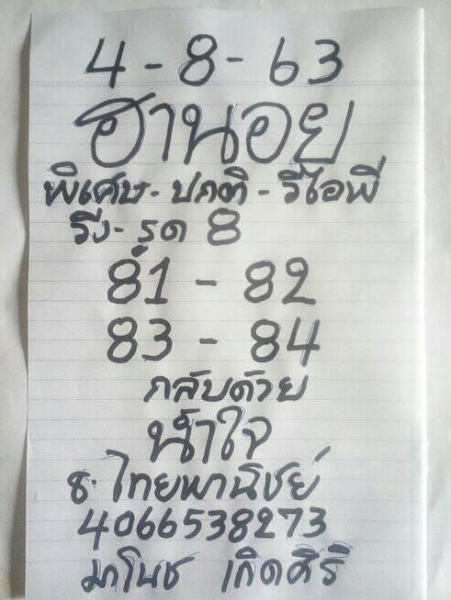 4 - 8 - 63
ฮานอย
พิเศษ - ปกติ - วีไอพี
วิ่ง - รูด 8
81 - 82
83 - 84
กลับด้วย
น้ำใจ
ธ. ไทยพานิชย์
4066538273
มาโนช เกิดศิริ